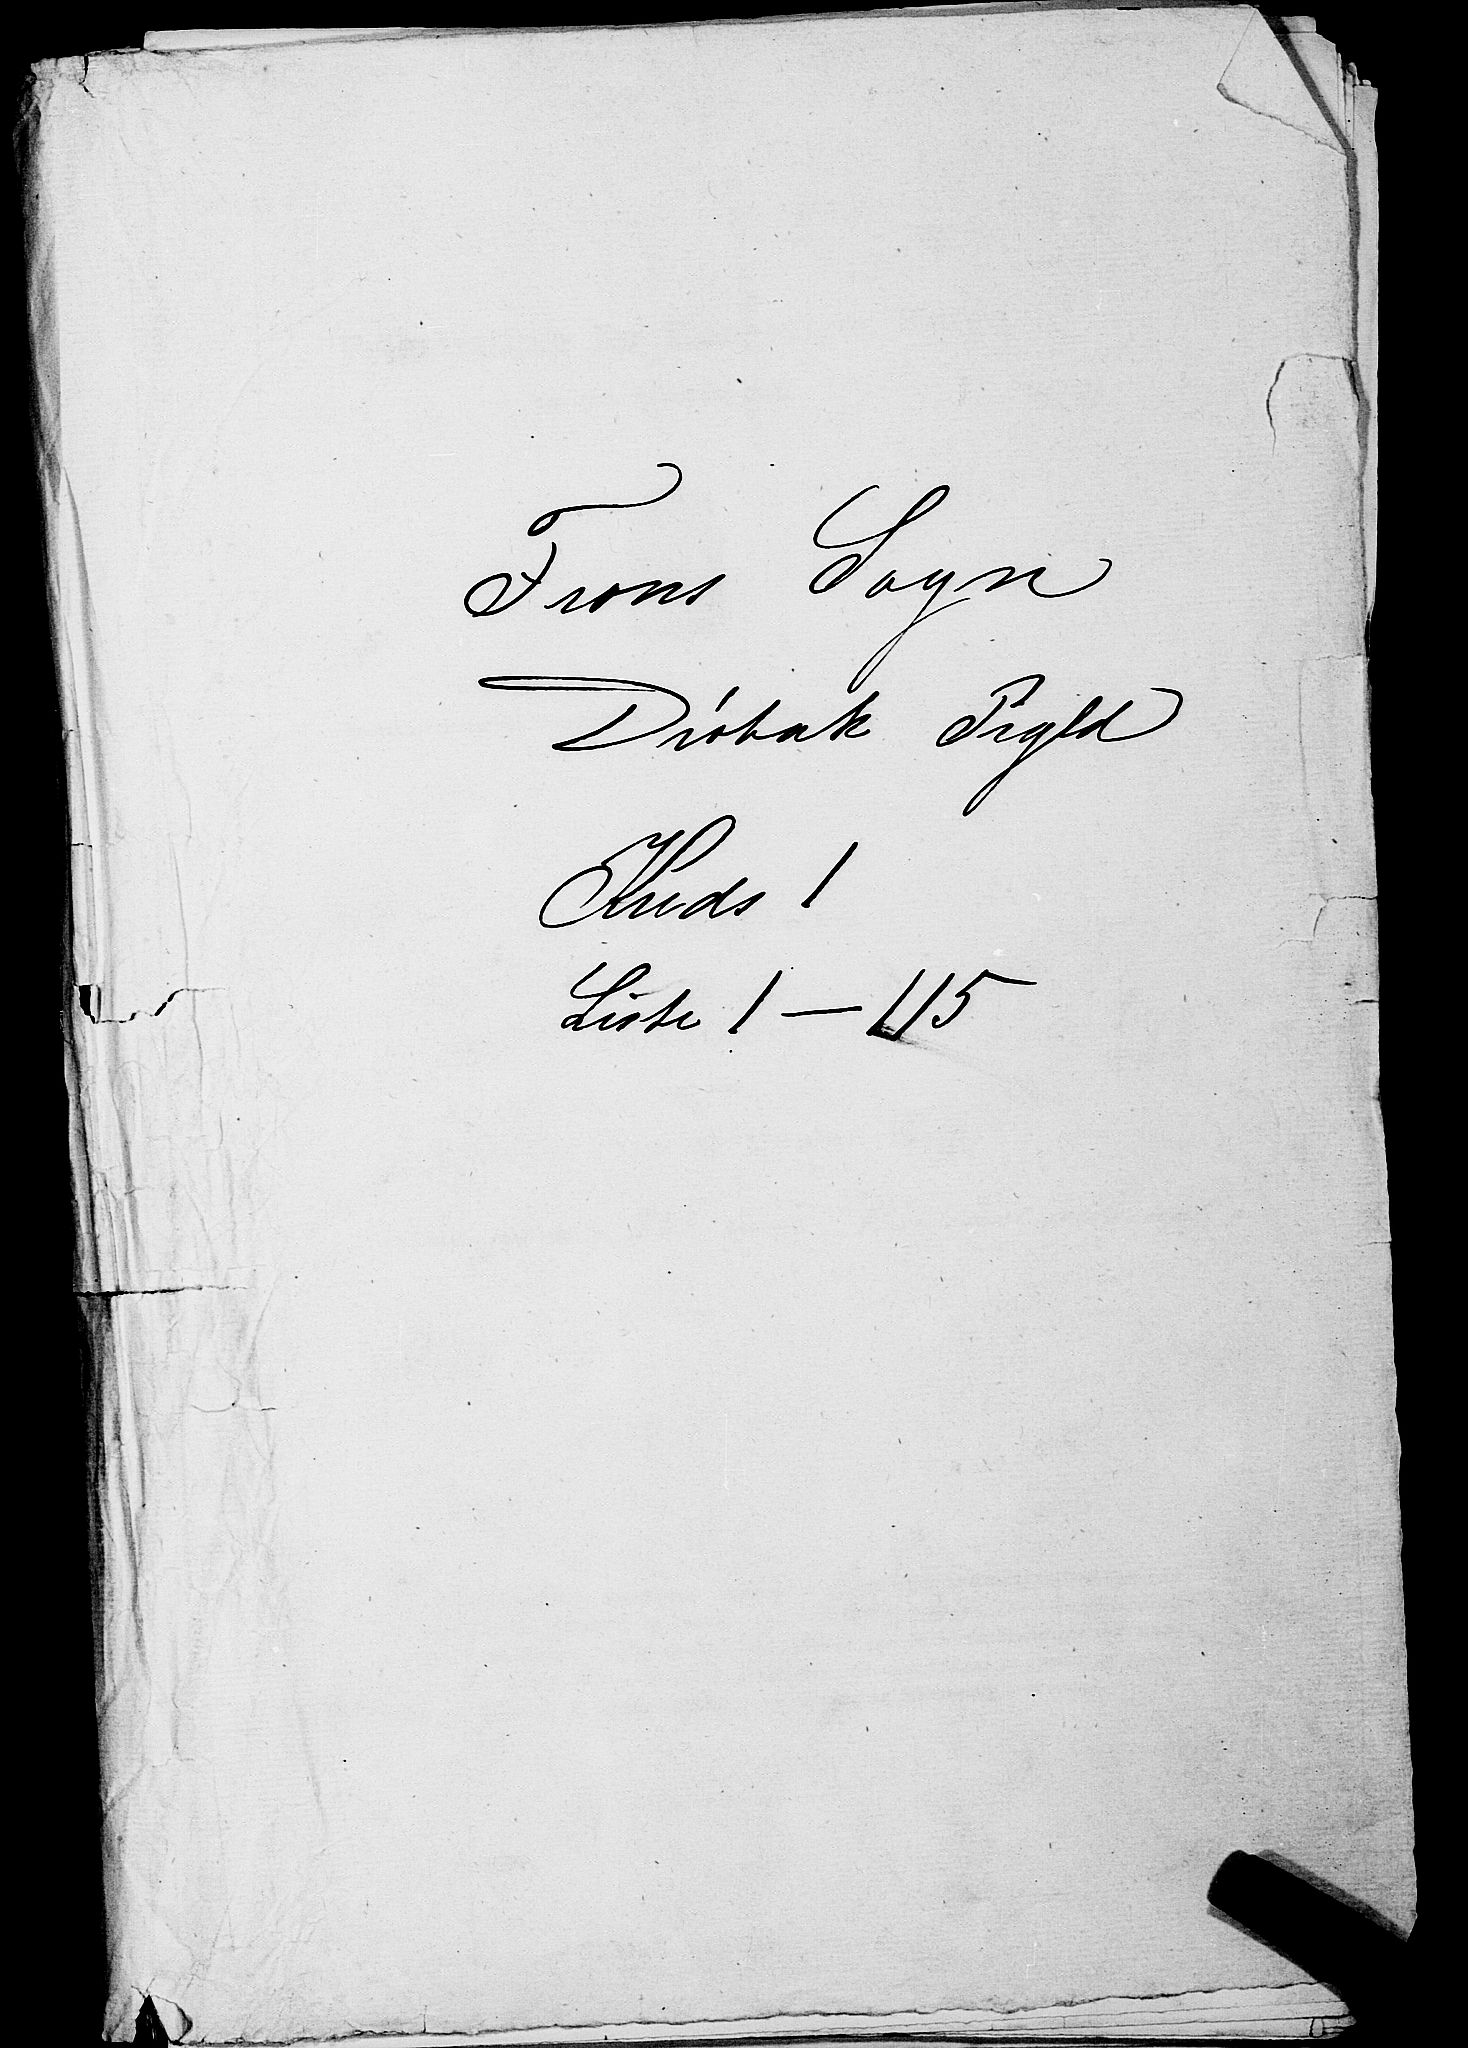 Frons Sogn
Drøbak Prgld
Kreds 1
Liste 1 — 115